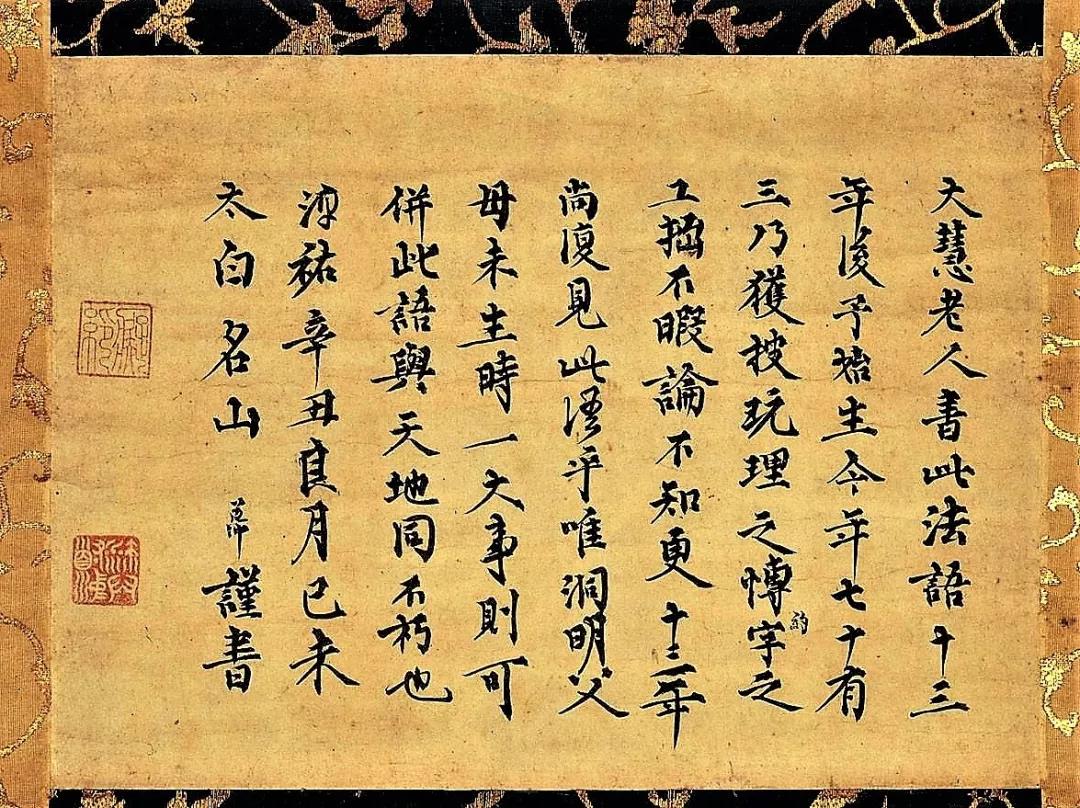 大慧老人書此法語十三
年後予始生今年七十有
三乃獲披玩理之慱字之
的
工不暇論不知更十二年
尚復見此語乎唯洞明父
母未生時一大事則可
併此語與天地同不朽也
淳祐辛丑良月己未
太白名山 謹書